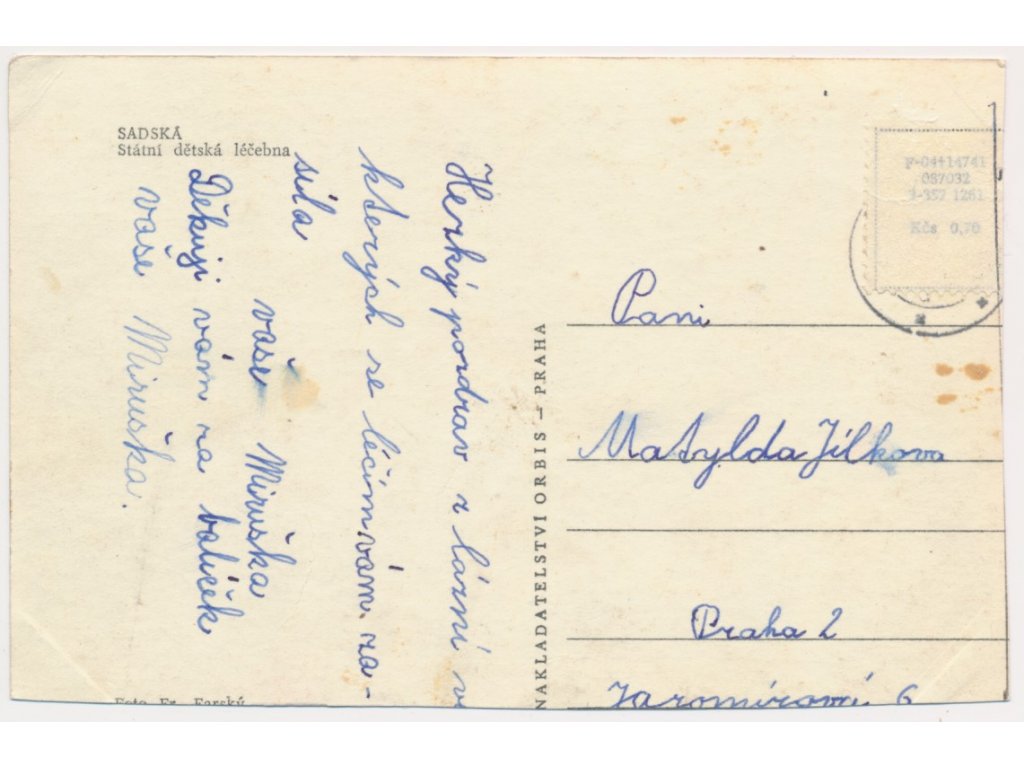 SADSKÁ
Státní dětská léčebna
Hezký pozdrav z lázní v
kterých se léčim vám za-
síla
vaše Miruška
Děkuji vám za balíček
vaše Miruška.
Foto Fr. Farský
NAKLADATELSTVÍ ORBIS — PRAHA
F-04414741
087032
3-357 1261
Kčs 0,70
Pani
Matylda Jílkova
Praha 2
Jaromírová 6